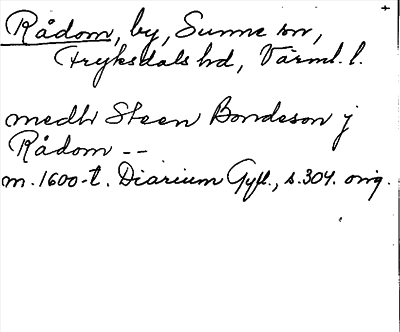 Rådom, by, Sunne sn,
Fryksdals hd, Värml. l.
medh Steen Bondeson j
Rådom --
m. 1600-t. Diarium Gyll., s. 304. orig.